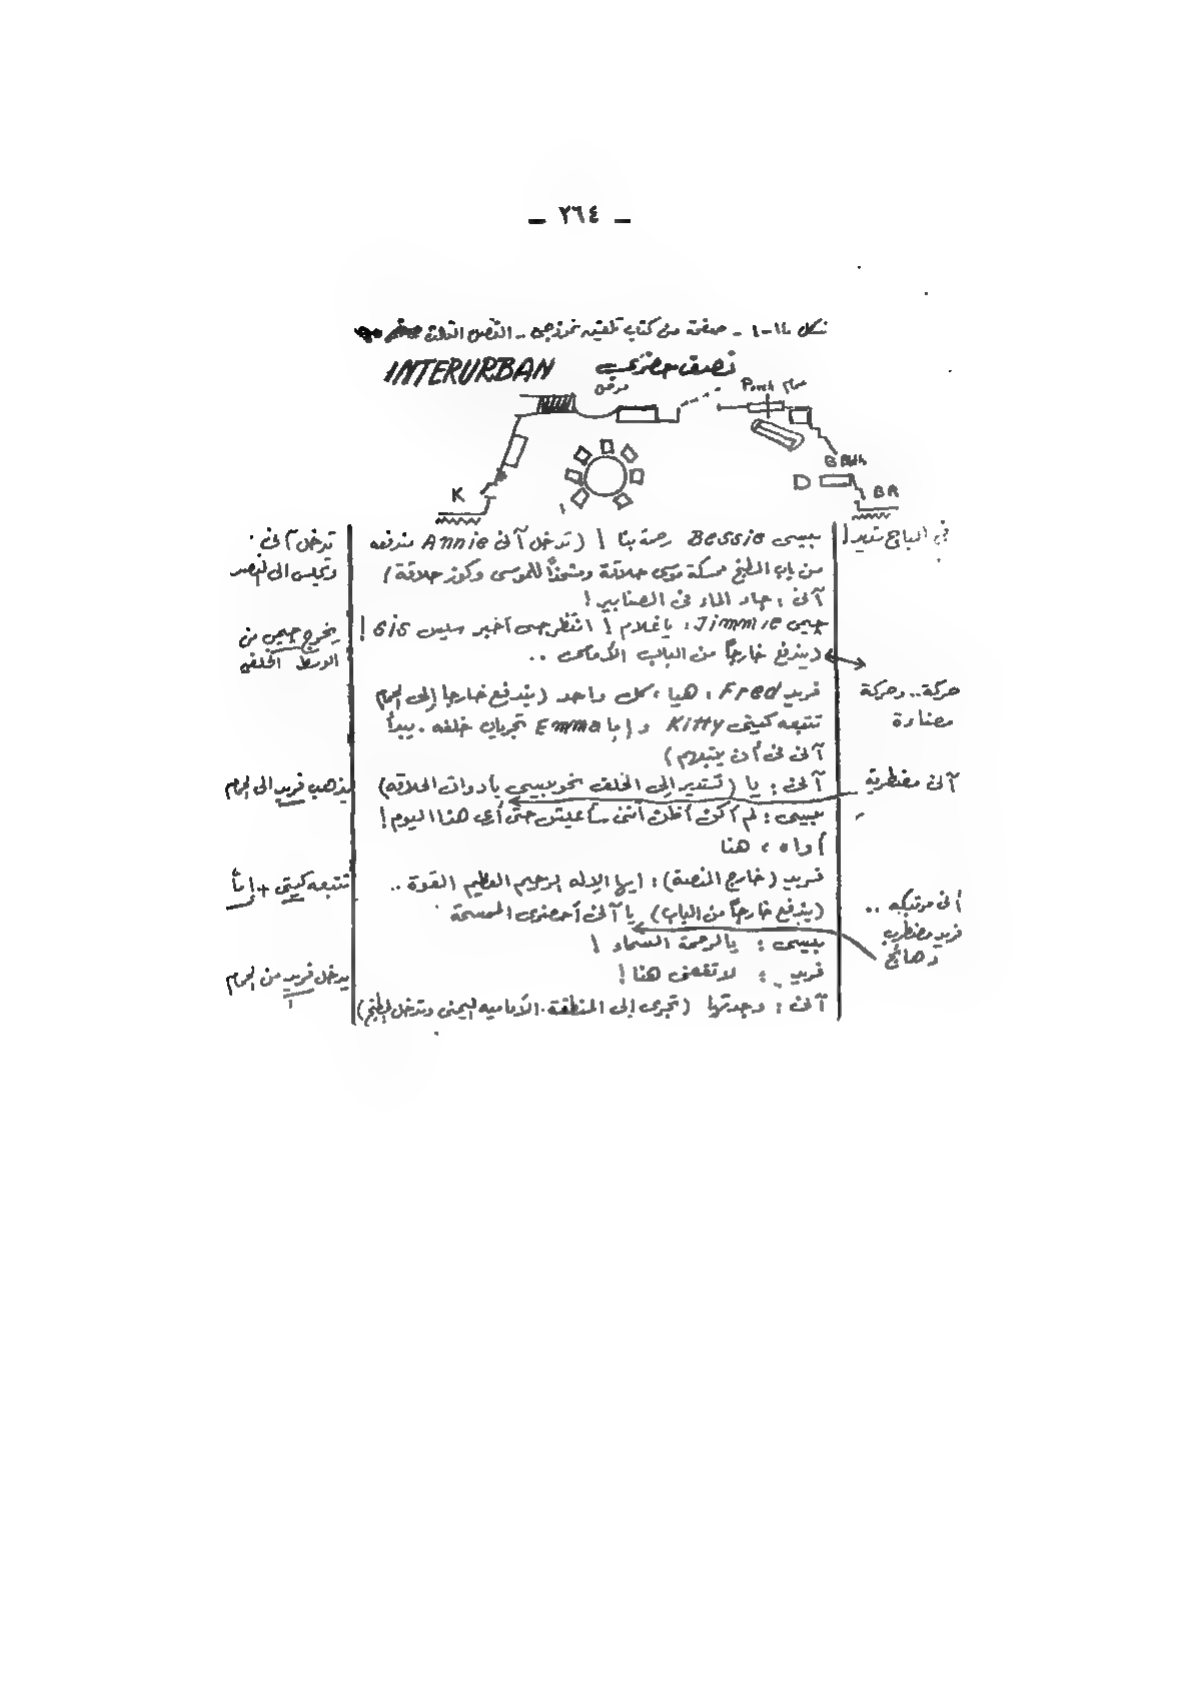 — ٢٦٤ —
شكل ١١-١ - صفحة من كتاب تلقين نموذجى - النص الثالث
INTERURBAN
نصف حضرى
مرقص
Porch حمام
B Bath
K
D
BR
بيسى Bessie رحمة بنا ! (تدخل آنى Annie مندفعه
من باب المطبخ ممسكة موسى حلاقة ومشحذاً للموسى وكوز حلاقة)
آنى : جاء الماء فى الصنابير !
جيمى Jimmie : ياغلام ! انتظر حتى أخبر سيس sis !
(يندفع خارجاً من الباب الأمامى ..
فريد Fred : هيا ، كل واحد (يندفع خارجا إلى الحمام
تتبعه كيتى Kitty و إيما Emma تجريان خلفه . يبدأ
آنى فى أن يتبعهم)
آنى : يا (تستدير إلى الخلف نحو بيسى بأدوات الحلاقه)
بيسى : لم أكن أظن أننى سأعيش حتى أرى هذا اليوم !
أواه ، هنا
فريد (خارج المنصة) : ايها الإله الرحيم العظيم القوة ..
(يندفع خارجاً من الباب) يا آنى أحضرى الممسحة
بيسى : يالرحمة السماء !
فريد : لا تقفى هنا !
آنى : وجدتها (تجرى إلى المنطقة الأماميه اليمنى وتدخل المطبخ)
تدخل آنى
يخرج جيمى من
الوسط الخلفى
يذهب فريد الى الحمام
تتبعه كيتى + إيما
يدخل فريد من الحمام
حركة .. وحركة
مضادة
آنى مضطربة
آنى مرتبكه ..
فريد مضطرب
وهائج